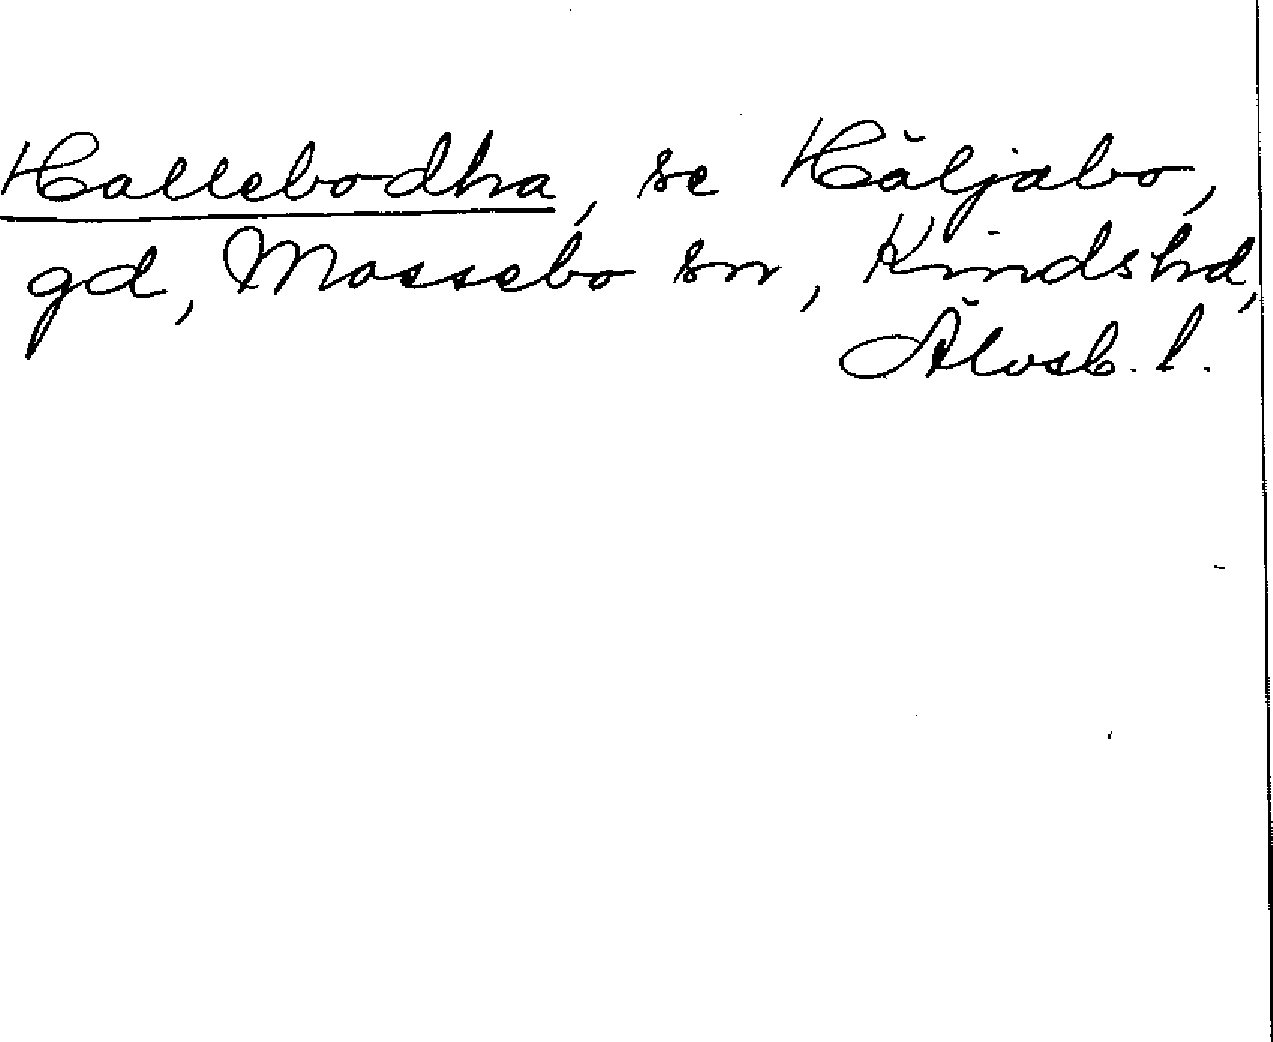 Hallebodha, se Häljabo,
gd, Mossebo sn, Kindshd,
Älvsb. l.